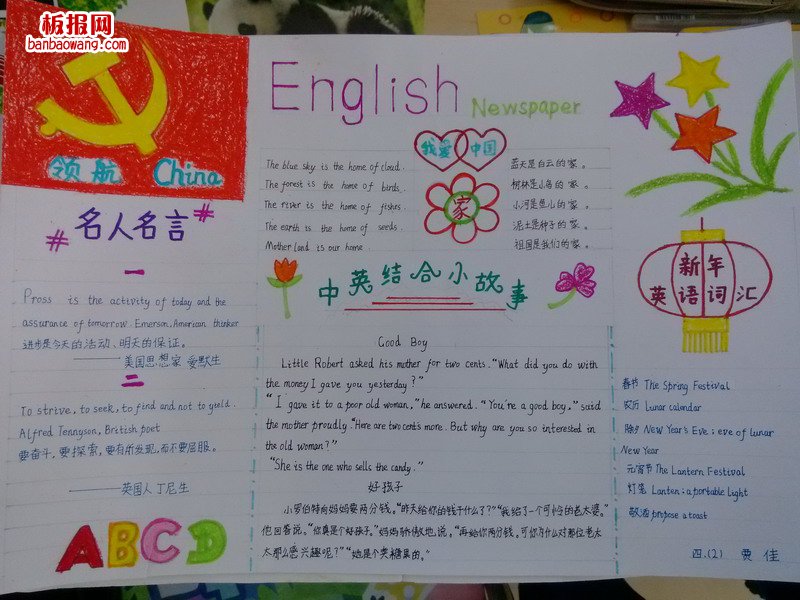 板报网
banbaowang.com
领航 China
English Newspaper
我爱 中国
The blue sky is the home of cloud.
The forest is the home of birds.
The river is the home of fishes.
The earth is the home of seeds.
Mother land is our home.
家
蓝天是白云的家。
树林是小鸟的家。
小河是鱼儿的家。
泥土是种子的家。
祖国是我们的家。
# 名人名言 #
一
Pross is the activity of today and the
assurance of tomorrow. Emerson, American thinker
进步是今天的活动、明天的保证。
——美国思想家 爱默生
二
To strive, to seek, to find and not to yield.
Alfred Tennyson, British poet
要奋斗,要探索,要有所发现,而不要屈服。
——英国人丁尼生
ABCD
中英结合小故事
Good Boy
Little Robert asked his mother for two cents. "What did you do with
the money I gave you yesterday?"
"I gave it to a poor old woman," he answered. "You're a good boy," said
the mother proudly. "Here are two cents more. But why are you so interested in
the old woman?"
"She is the one who sells the candy."
好孩子
小罗伯特向妈妈要两分钱。"昨天给你的钱干什么了?""我给了一个可怜的老太婆,"
他回答说。"你真是个好孩子,"妈妈骄傲地说。"再给你两分钱。可你为什么对那位老太
太那么感兴趣呢?""她是个卖糖果的。"
新年
英语词汇
春节 The Spring Festival
农历 Lunar calendar
除夕 New Year's Eve; eve of lunar
New Year
元宵节 The Lantern Festival
灯笼 Lanten: a portable light
敬酒 propose a toast
四.(2) 贾佳